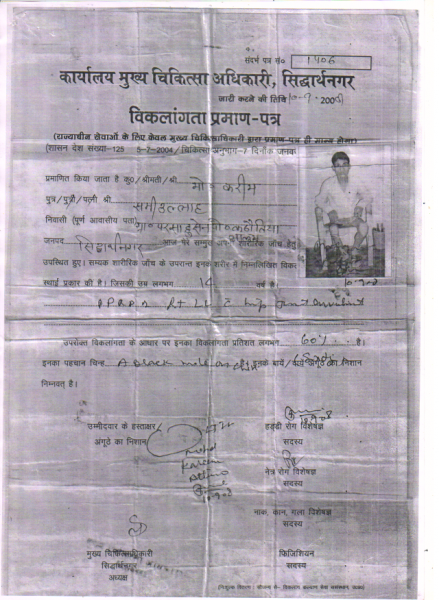 संदर्भ पत्र सं० 1406
कार्यालय मुख्य चिकित्सा अधिकारी, सिद्धार्थनगर
जारी करने की तिथि 10-9-200
विकलांगता प्रमाण-पत्र
(राज्याधीन सेवाओं के लिए केवल मुख्य चिकित्साधिकारी द्वारा प्रमाण-पत्र ही मान्य होगा)
(शासन देश संख्या-125 5-7-2004/चिकित्सा अनुभाग-7 दिनाँक
प्रमाणित किया जाता है कु०/श्रीमती/श्री मो० करीम
पुत्र/पुत्री/पत्नी श्री समीउल्लाह
निवासी (पूर्ण आवासीय पता) ग्रा०
जनपद सिद्धार्थनगर आज मेरे सम्मुख अपनी शारीरिक जाँच हेतु
उपस्थित हुए। सम्यक शारीरिक जाँच के उपरान्त इनके शरीर में निम्नलिखित
स्थाई प्रकार की है। जिसकी उम्र लगभग 14 वर्ष है।
P.P.R.P. Rt LL hip
उपरोक्त विकलांगता के आधार पर इनका विकलांगता प्रतिशत लगभग 60% है।
इनका पहचान चिन्ह A Black mole on है। इनके बायें/दायें अंगूठे का निशान
निम्नवत् है।
उम्मीदवार के हस्ताक्षर/
अंगूठे का निशान
हड्डी रोग विशेषज्ञ
सदस्य
नेत्र रोग विशेषज्ञ
सदस्य
नाक, कान, गला विशेषज्ञ
सदस्य
मुख्य चिकित्साधिकारी
सिद्धार्थनगर
अध्यक्ष
फिजिशियन
सदस्य